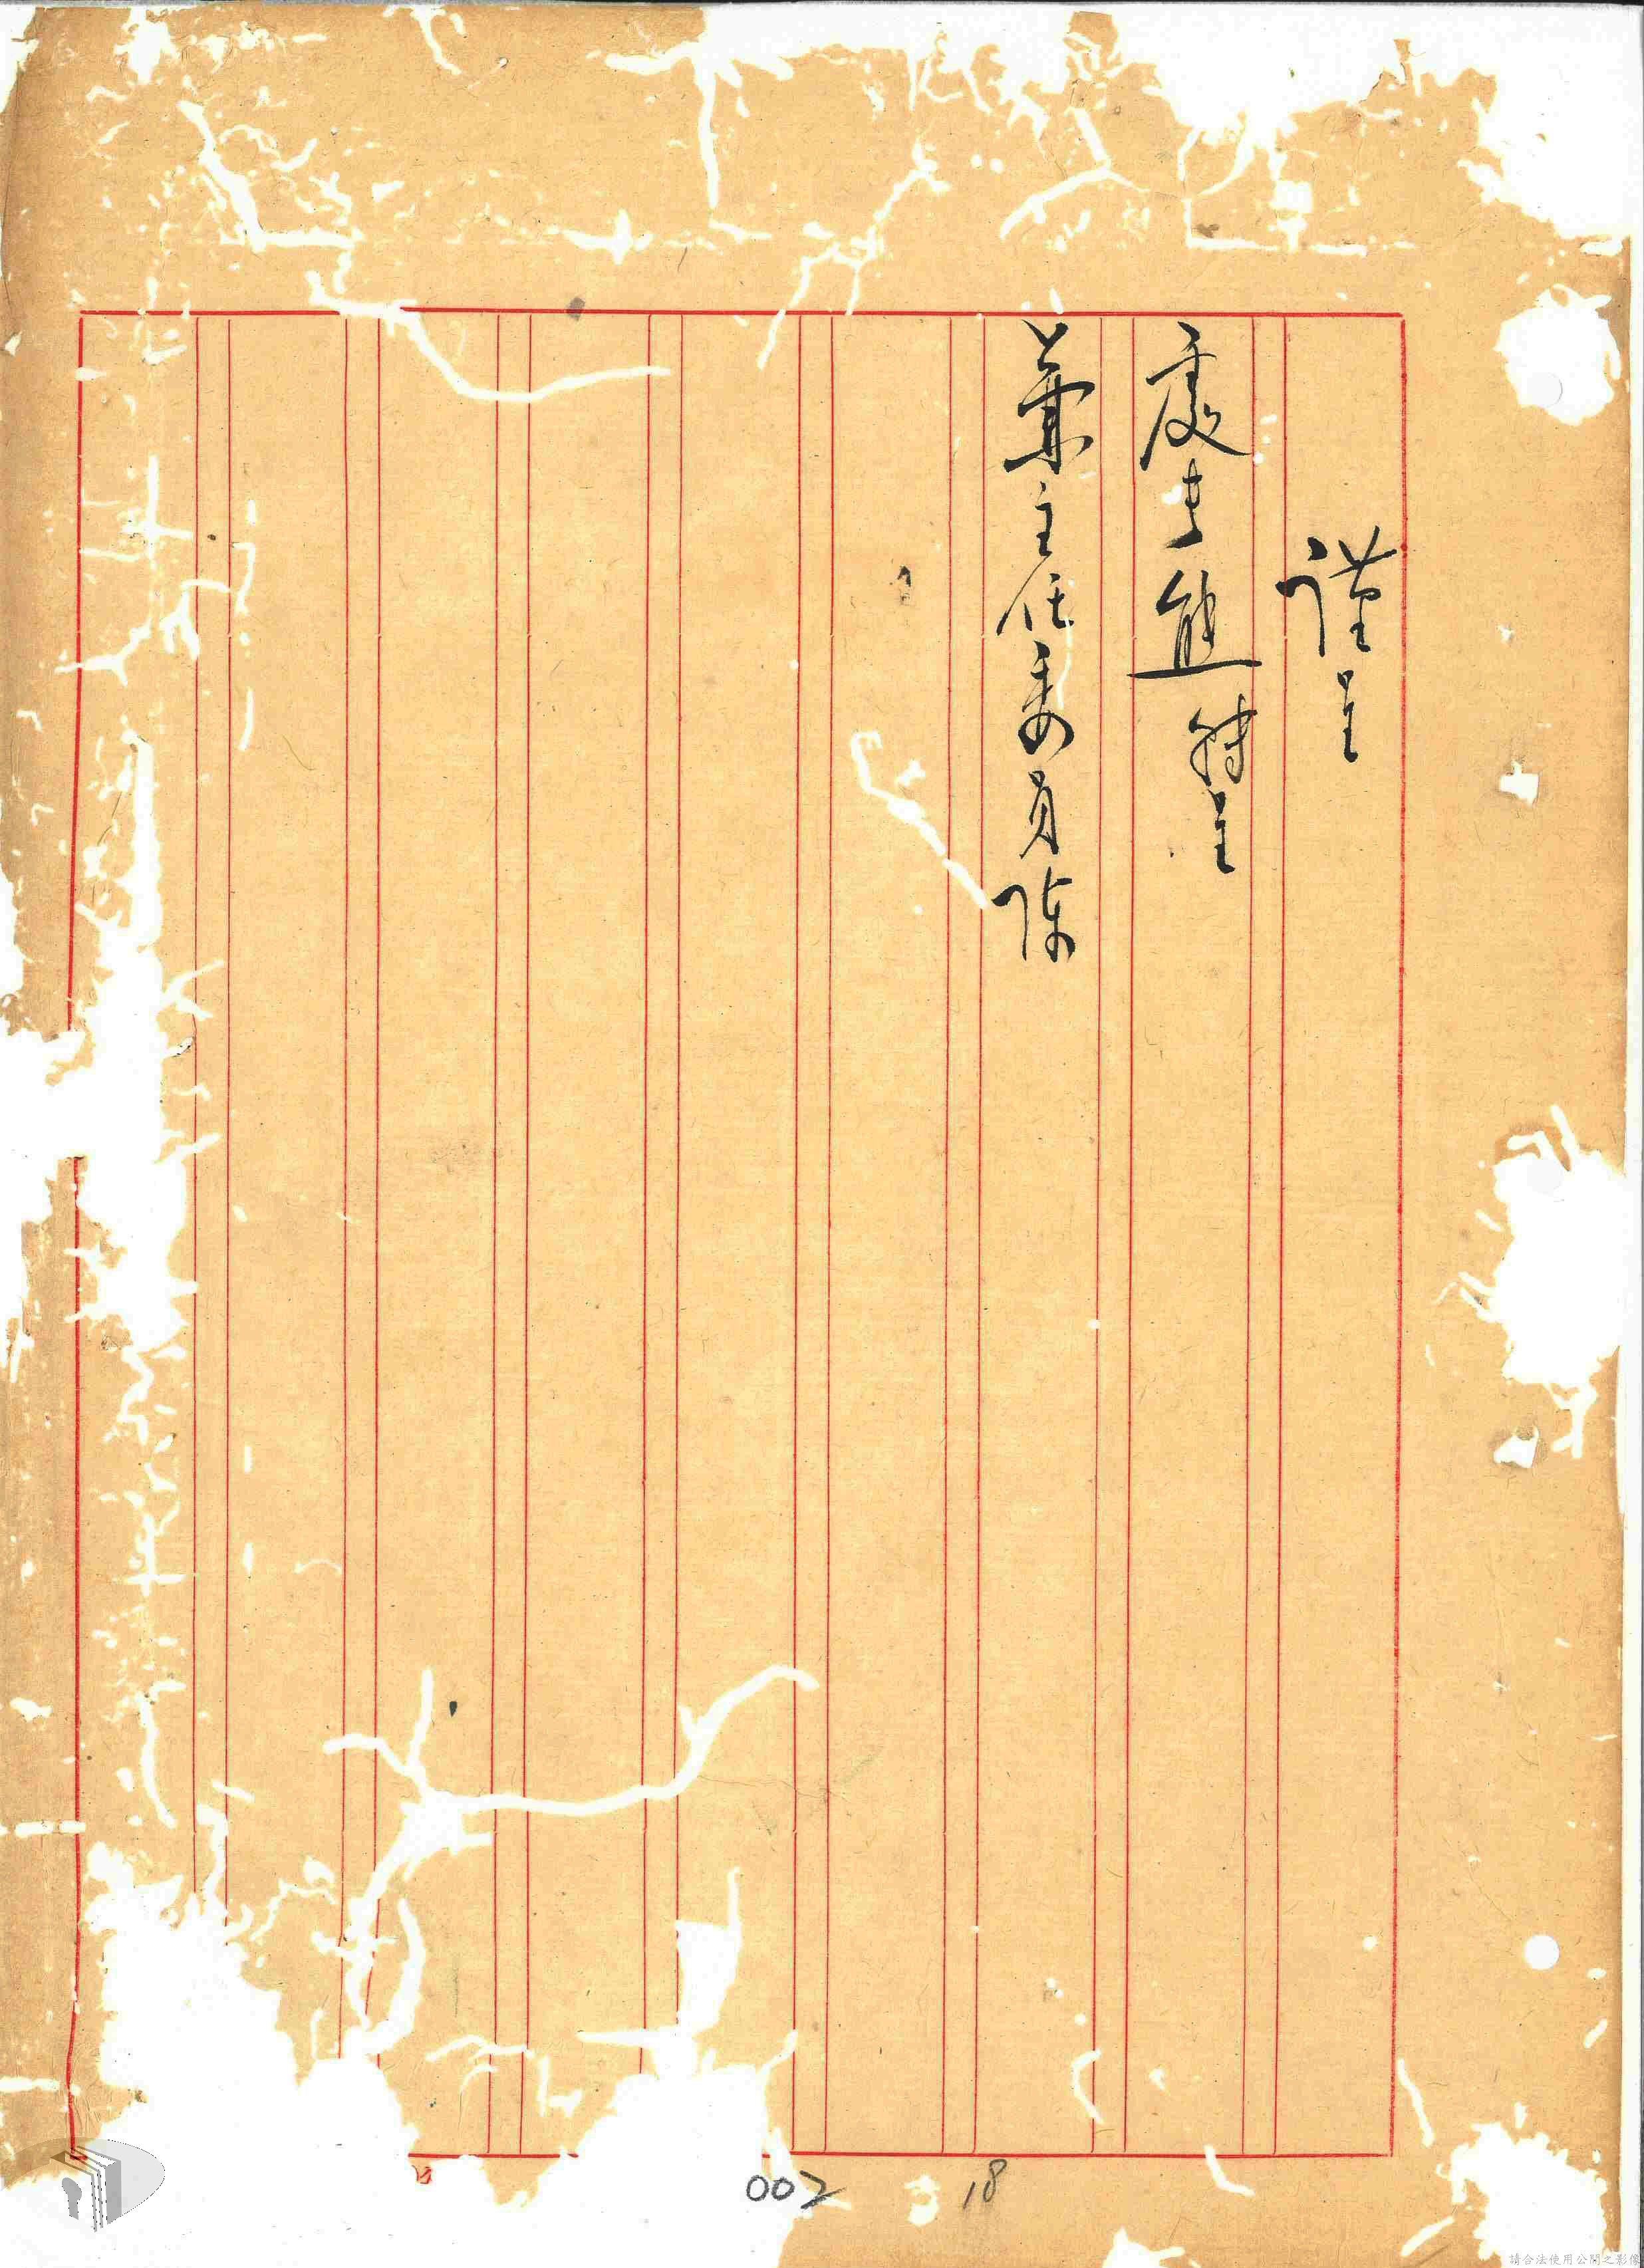 謹呈
處長熊 轉呈
兼主任委員陳
002
18
請合法使用公開之影像